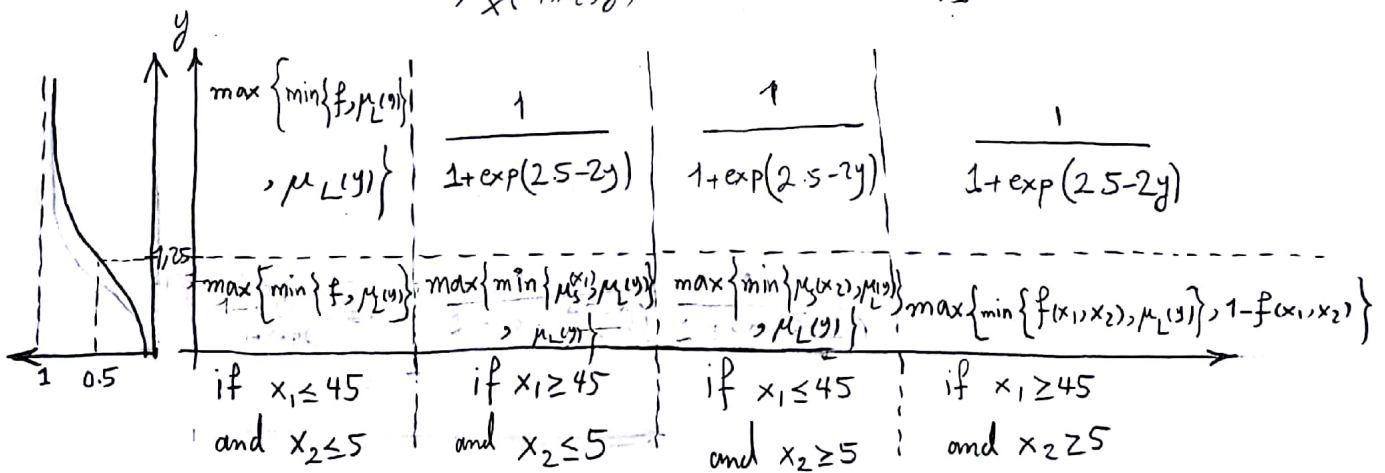 y
max {min{f, μ_L(y)}
, μ_L(y)}
1
1+exp(2.5-2y)
1
1+exp(2.5-2y)
1
1+exp(2.5-2y)
1,25
max{min{f, μ_L(y)}
max{min{μ_S(x_1), μ_L(y)}
, μ_L(y)}
max{min{μ_S(x_2), μ_L(y)}
, μ_L(y)}
max{min{f(x_1,x_2), μ_L(y)}, 1-f(x_1,x_2)}
1 0.5
if x_1≤45
and x_2≤5
if x_1≥45
and x_2≤5
if x_1≤45
and x_2≥5
if x_1≥45
and x_2≥5